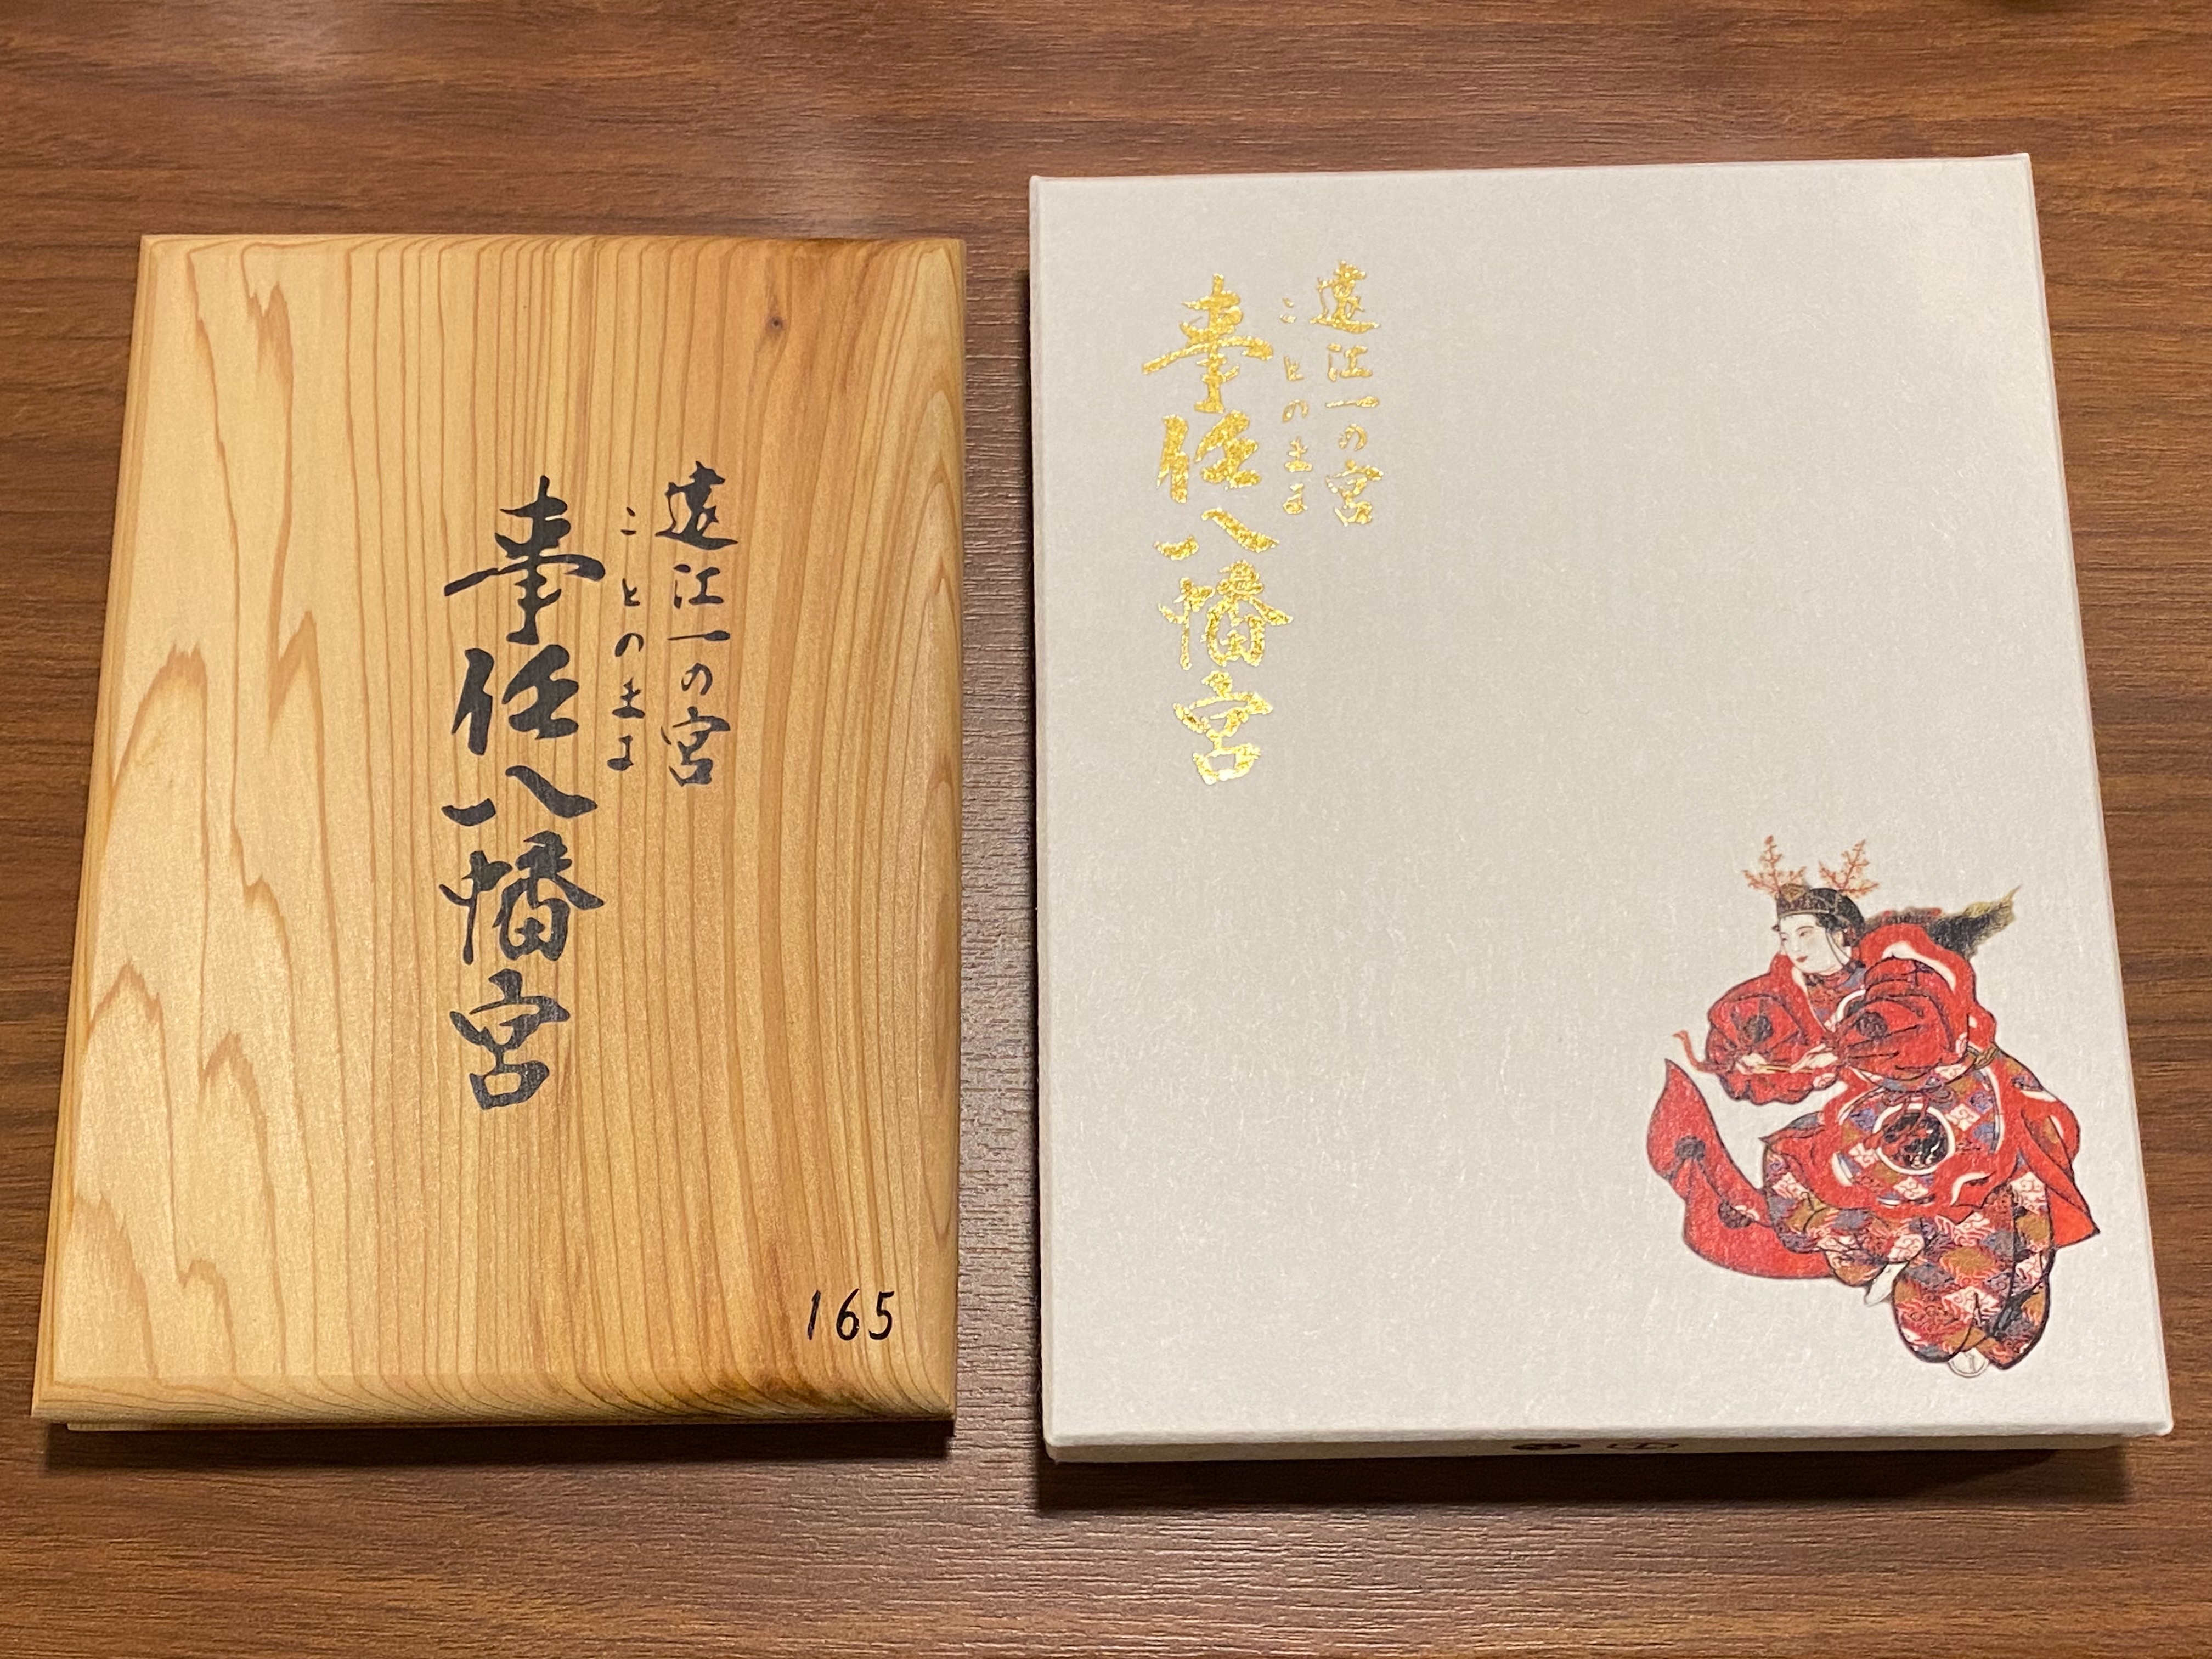 遠江一の宮
ことのまま
事任八幡宮
165
遠江一の宮
ことのまま
事任八幡宮